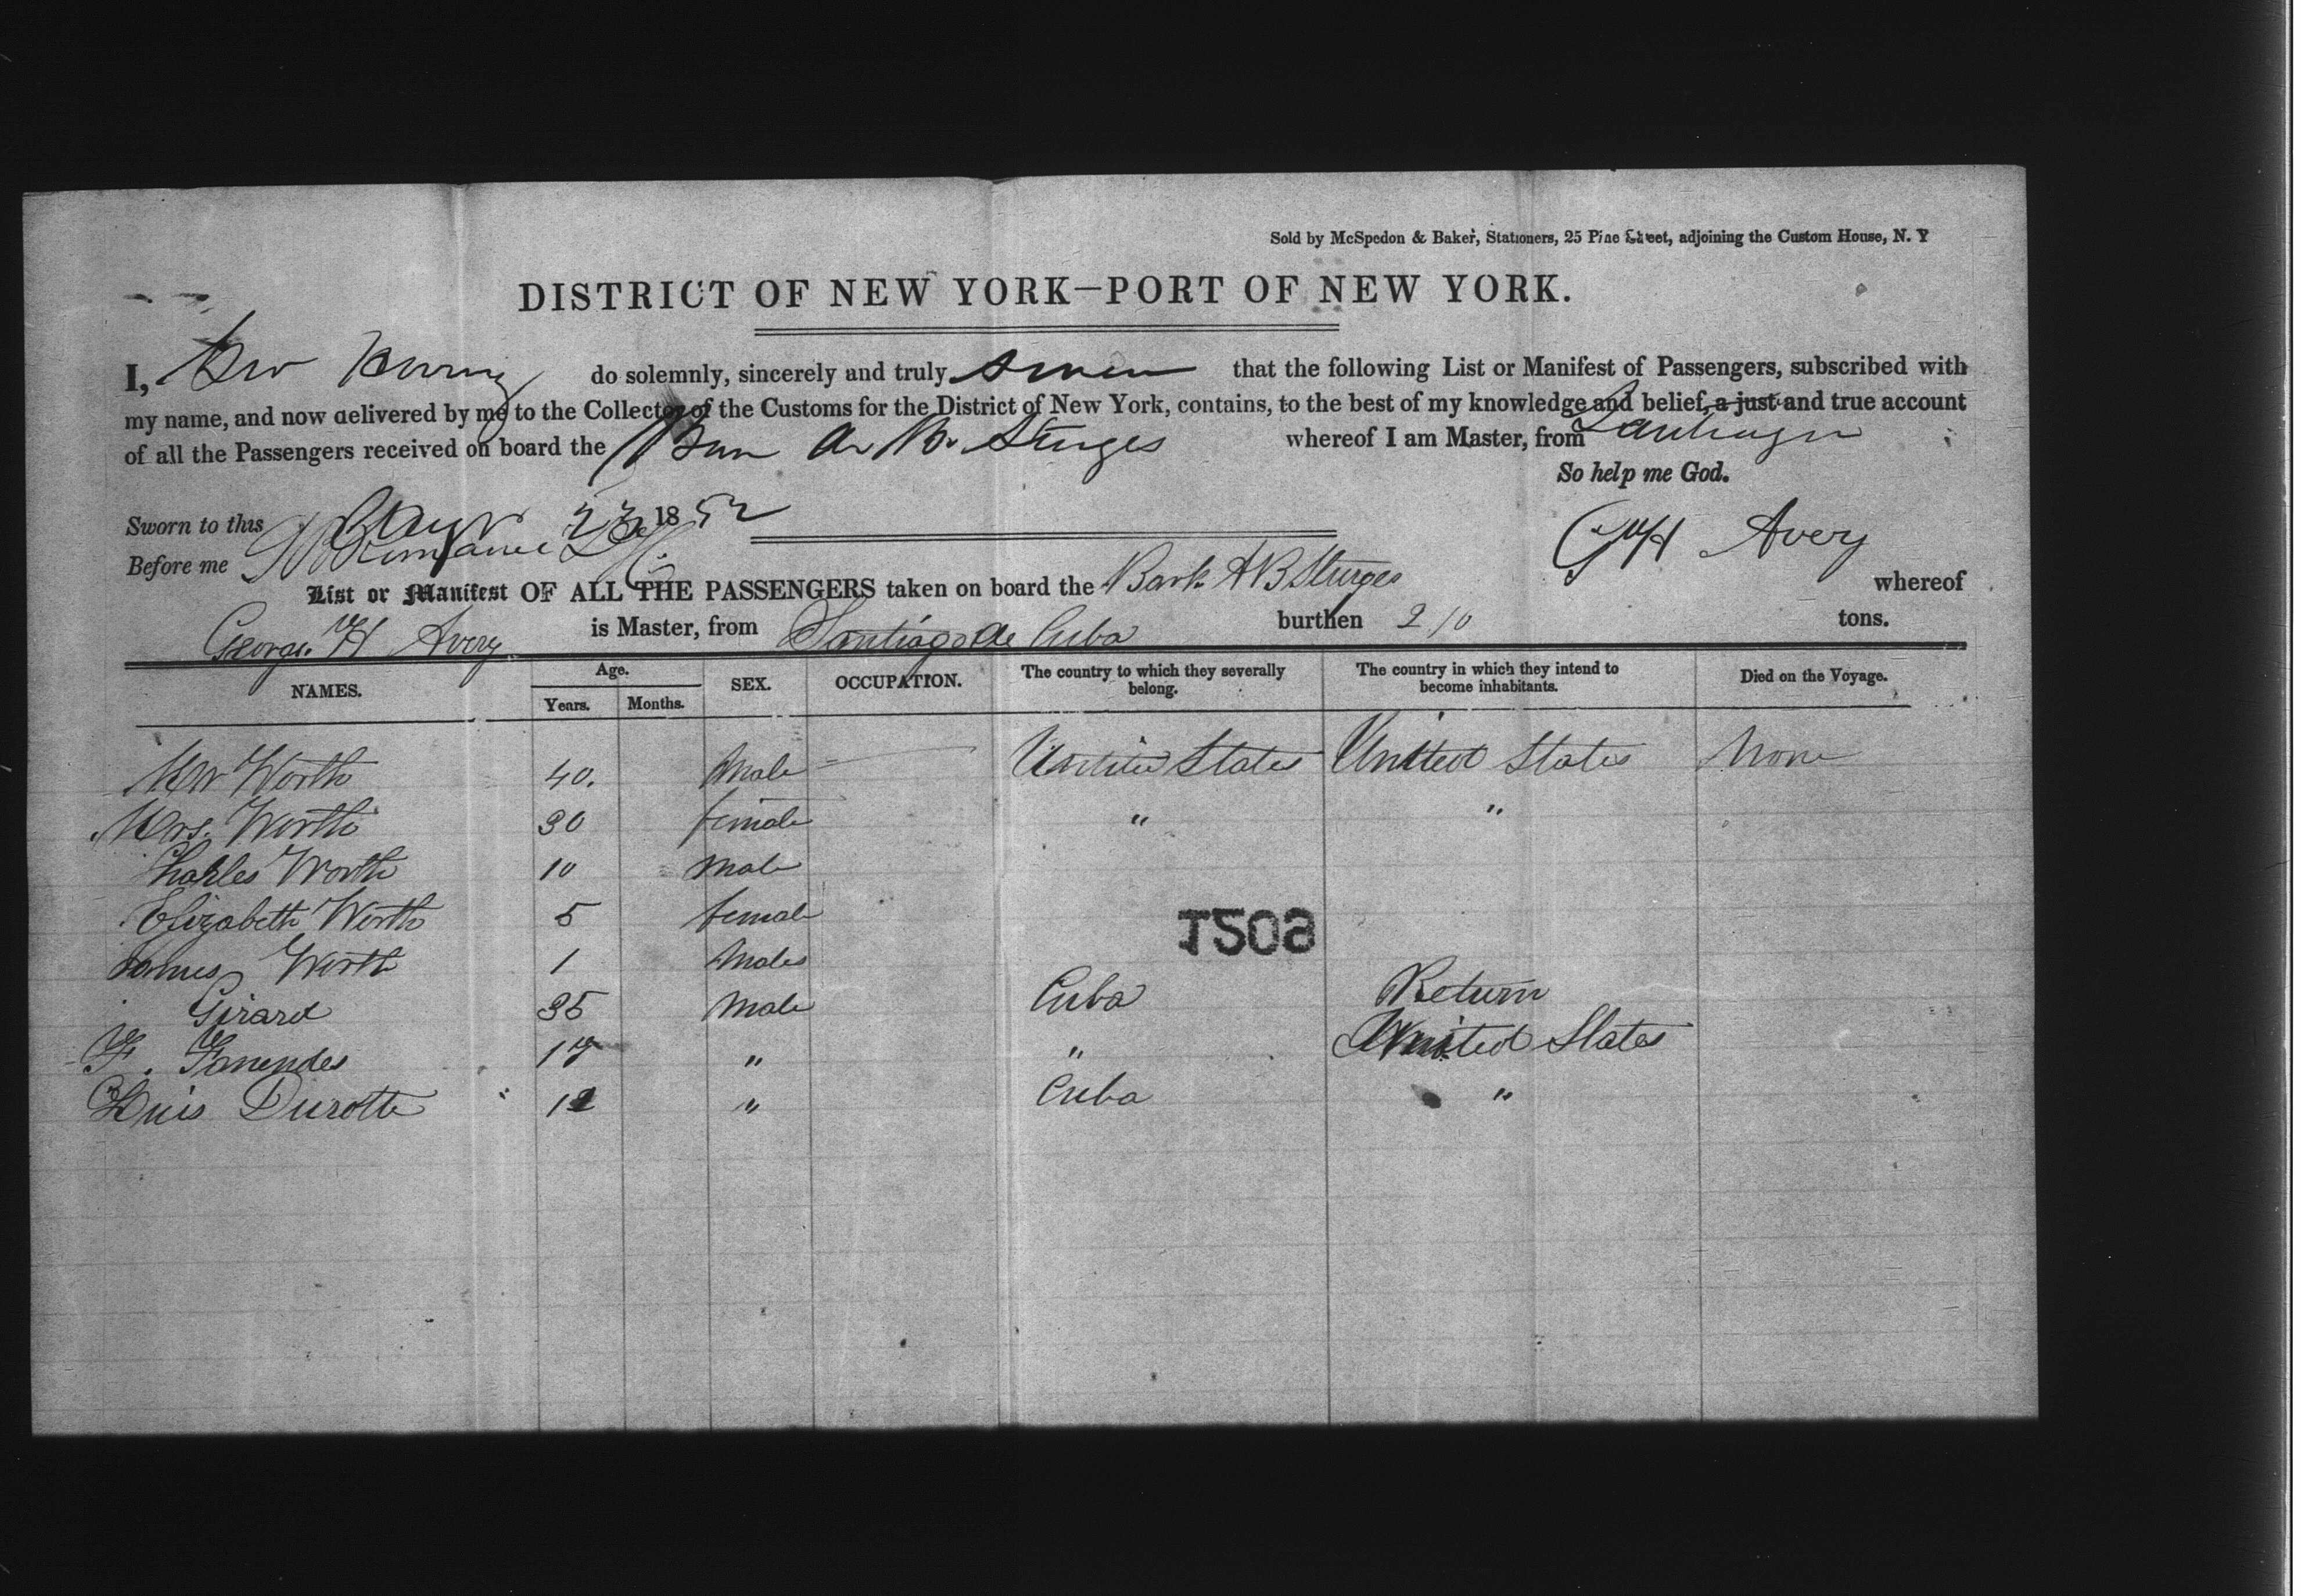 Sold by McSpedon & Baker, Stationers, 25 Pine Street, adjoining the Custom House, N. Y
DISTRICT OF NEW YORK—PORT OF NEW YORK.
I, do solemnly, sincerely and truly swear that the following List or Manifest of Passengers, subscribed with
my name, and now delivered by me to the Collector of the Customs for the District of New York, contains, to the best of my knowledge and belief, a just and true account
of all the Passengers received on board the A. B. Sturges whereof I am Master, from
So help me God.
Sworn to this 23 1852
Before me
G W H Avery
List or Manifest OF ALL THE PASSENGERS taken on board the Bark A B Sturges whereof
George W H Avery is Master, from Santiago de Cuba burthen 210 tons.
NAMES. Age. Years. Months. SEX. OCCUPATION. The country to which they severally belong. The country in which they intend to become inhabitants. Died on the Voyage.
Mr Worth 40. Male United States United States None
Mrs. Worth 30 female " "
Charles Worth 10 Male
Elizabeth Worth 5 female
James Worth 1 Males
Girard 35 Male Cuba Return
F. 17 " " United States
Luis Durotte 12 " Cuba "
1509